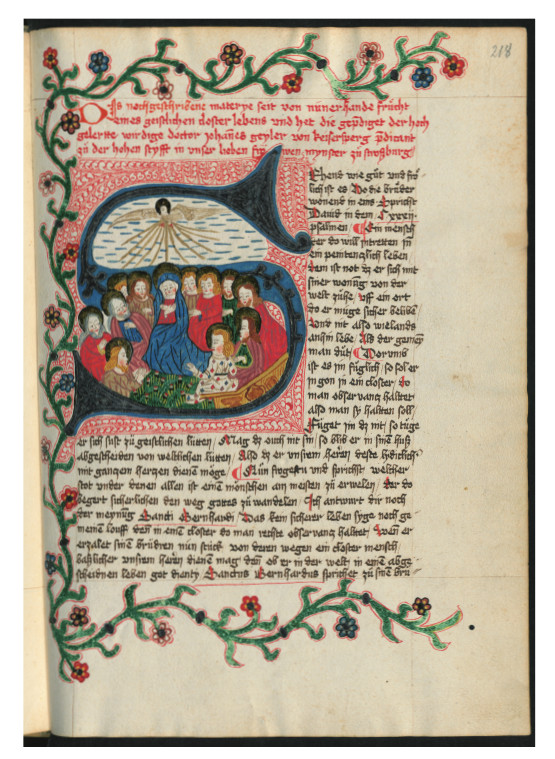 218
Dis nochgeschribene materye seit von nünerhande frücht
eines geistlichen closter lebens vnd het die geprdiget der hoch
gelertte wirdige doctor Johānes geyler von keisersperg pdicant
zů der hohen styfft in vnser lieben frowen mynster zů stroßburg
Sehend wie gůt vnd frö
lich ist es do die brüder
wonend in eins Spricht
Dauid in dem
psalmen Ein mensch
der do will intretten in
ein penitenczlich leben
dem ist not dz er sich mit
siner wonūg von der
welt zühe vff ein ort
do er müge sicher beliben
vnd nit also wielands
ansin lebe Als der gemeyn
man düt Dorvmb
ist es im füglich so sol er
in gon in ein closter do
man obseruancz halttet
also man sÿ haltten soll
Füget im dz nit so tüge
er sich sust zů geistlichen lütten Mag dz ouch nit sin so blib er in sinē huß
abgescheiden von weltlichen lütten Also dz er vnserm heren deste lydiclich
mit ganczem herczen dienē möge Nün frogestu vnd sprichst welcher
stot vnder denen allen ist einē mönschen am meisten zů erwelen der do
begert sicherlichen den weg gottes zů wandelen Ich antwurt dir noch
der meynūg Sancti Bernhardi Das kein sicherer leben syge noch ge
meinem louff den in einē closter do man rechte obseruancz haltet Wen er
erzalet sinē brüdren nün stück von deren wegen ein closter mensch
baßlicher vnserm herēn dienē mag den ob er in der welt in einē abge
scheidnen leben got dientt Sanctus Bernhardus sprichet zů sinē brü